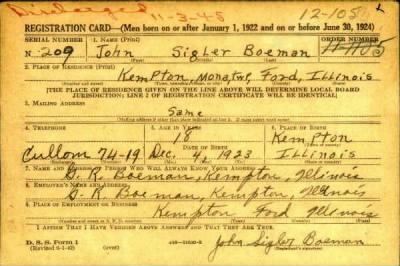 Discharged 11-3-45
12-105
REGISTRATION CARD—(Men born on or after January 1, 1922 and on or before June 30, 1924)
SERIAL NUMBER 1. NAME (Print) ORDER NUMBER
N-209 John Sigler Boeman
(First) (Middle) (Last)
2. PLACE OF RESIDENCE (Print)
Kempton, Mona Twp, Ford, Illinois
[THE PLACE OF RESIDENCE GIVEN ON THE LINE ABOVE WILL DETERMINE LOCAL BOARD
JURISDICTION; LINE 2 OF REGISTRATION CERTIFICATE WILL BE IDENTICAL]
3. MAILING ADDRESS
Same
[Mailing address if other than place indicated on line 2. If same insert word same]
4. TELEPHONE 5. AGE IN YEARS 6. PLACE OF BIRTH
18 Kempton
DATE OF BIRTH
Cullom 74-19 Dec. 4, 1923 Illinois
7. NAME AND ADDRESS OF PERSON WHO WILL ALWAYS KNOW YOUR ADDRESS
G. R. Boeman, Kempton, Illinois
8. EMPLOYER'S NAME AND ADDRESS
G. R. Boeman, Kempton, Illinois
9. PLACE OF EMPLOYMENT OR BUSINESS
Kempton Ford Illinois
I AFFIRM THAT I HAVE VERIFIED ABOVE ANSWERS AND THAT THEY ARE TRUE.
D. S. S. Form 1
(Revised 6-1-42) (over)
John Sigler Boeman